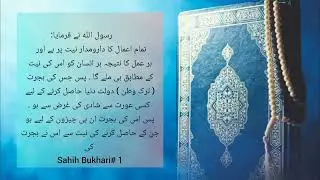 رسول اللہ نے فرمایا:
تمام اعمال کا دارومدار نیت پر ہے اور
ہر عمل کا نتیجہ ہر انسان کو اس کی نیت
کے مطابق ہی ملے گا ۔ پس جس کی ہجرت
( ترک وطن ) دولت دنیا حاصل کرنے کے لیے
کسی عورت سے شادی کی غرض سے ہو ۔
پس اس کی ہجرت ان ہی چیزوں کے لیے ہو
جن کے حاصل کرنے کی نیت سے اس نے ہجرت
کی
Sahih Bukhari# 1